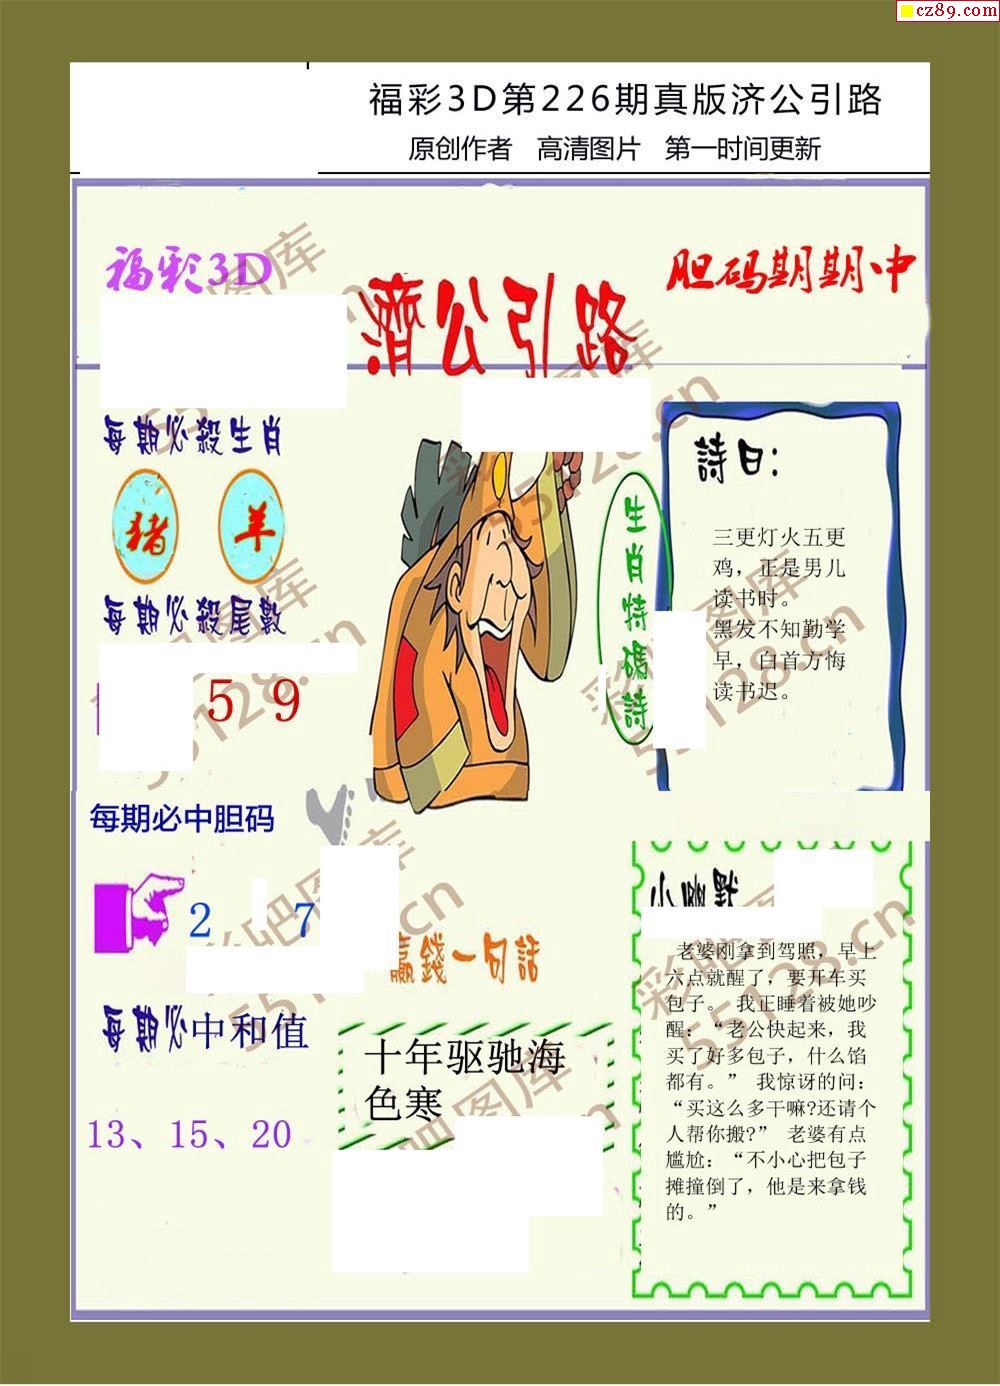 cz89.com
福彩3D第226期真版济公引路
原创作者 高清图片 第一时间更新
福彩3D
濟公引路
胆码期期中
每期必殺生肖
猪 羊
每期必殺尾數
5 9
每期必中胆码
2 7
每期必中和值
13、15、20
生肖特碼詩
詩曰：
三更灯火五更
鸡，正是男儿
读书时。
黑发不知勤学
早，白首方悔
读书迟。
赢錢一句話
十年驱驰海
色寒
小幽默
老婆刚拿到驾照，早上
六点就醒了，要开车买
包子。 我正睡着被她吵
醒：“老公快起来，我
买了好多包子，什么馅
都有。” 我惊讶的问：
“买这么多干嘛?还请个
人帮你搬?” 老婆有点
尴尬：“不小心把包子
摊撞倒了，他是来拿钱
的。”
彩吧图库
55128.cn